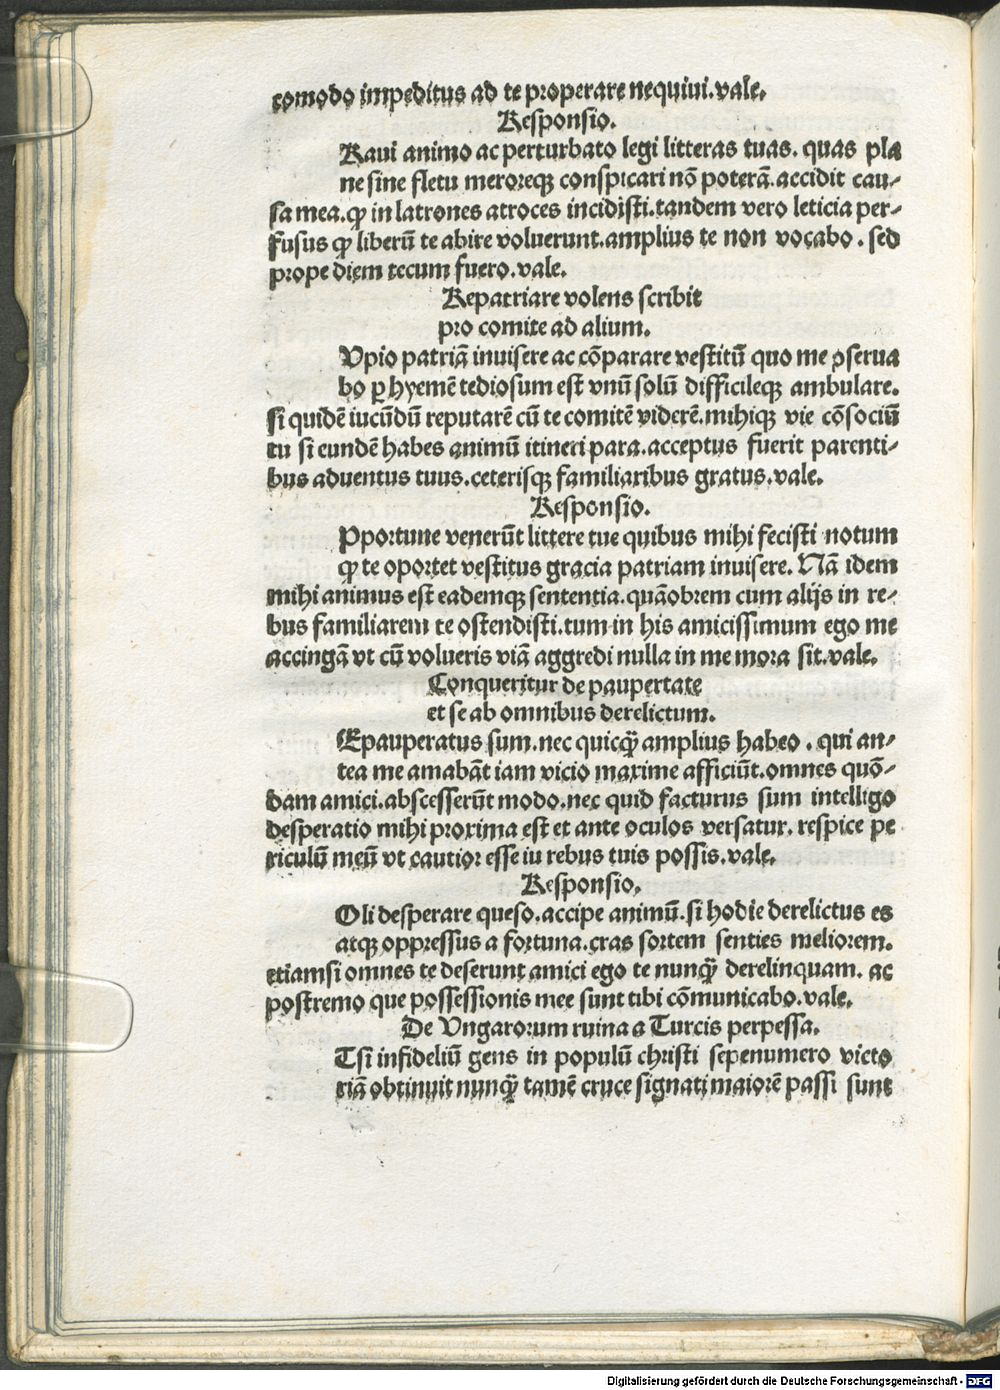 comodo impeditus ad te properare nequiui.vale.
Responsio.
Raui animo ac perturbato legi litteras tuas. quas pla
ne sine fletu meroreqꝫ conspicari nō poterā.accidit cau⸗
sa mea.ꝙ in latrones atroces incidisti.tandem vero leticia per⸗
fusus ꝙ liberū te abire voluerunt.amplius te non vocabo. sed
prope diem tecum fuero.vale.
Repatriare volens scribit
pro comite ad alium.
Vpio patriā inuisere ac cōparare vestitū quo me ꝯserua
bo ꝑ hyemē tediosum est vnū solū difficileqꝫ ambulare.
si quidē iucūdū reputarē cū te comitē viderē.mihiqꝫ vie cōsociū
tu si eundē habes animū itineri para.acceptus fuerit parenti⸗
bus aduentus tuus.ceterisqꝫ familiaribus gratus.vale.
Responsio.
Pportune venerūt littere tue quibus mihi fecisti notum
ꝙ te oportet vestitus gracia patriam inuisere. Nā idem
mihi animus est eademqꝫ sententia.quāobrem cum alijs in re⸗
bus familiarem te ostendisti.tum in his amicissimum ego me
accingā vt cū volueris viā aggredi nulla in me mora sit.vale.
Conqueritur de paupertate
et se ab omnibus derelictum.
Epauperatus sum.nec quicq̄ amplius habeo. qui an⸗
tea me amabāt iam vicio maxime afficiūt.omnes quō⸗
dam amici.abscesserūt modo.nec quid facturus sum intelligo
desperatio mihi proxima est et ante oculos versatur. respice pe
riculū meū vt cautior esse iu rebus tuis possis.vale.
Responsio.
Oli desperare queso.accipe animū.si hodie derelictus es
atqꝫ oppressus a fortuna.cras sortem senties meliorem.
etiamsi omnes te deserunt amici ego te nunq̄ derelinquam. ac
postremo que possessionis mee sunt tibi cōmunicabo.vale.
De Vngarorum ruina a Turcis perpessa.
Tsi infideliū gens in populū christi sepenumero victo
riā obtinuit nunq̄ tamē cruce signati maiorē passi sunt
Digitalisierung gefördert durch die Deutsche Forschungsgemeinschaft - DFG